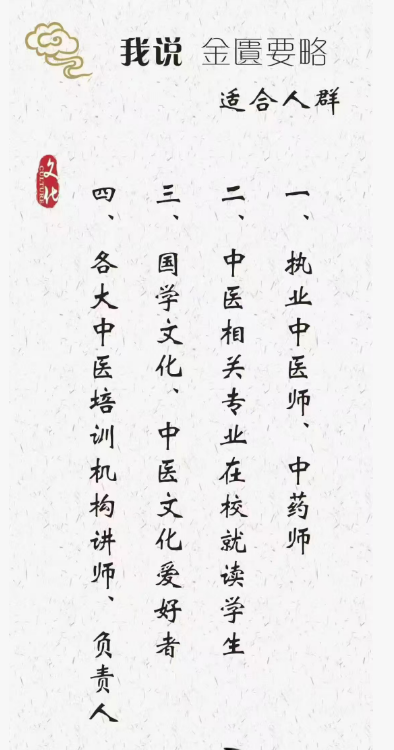 我说 金匱要略
适合人群
一、执业中医师、中药师
二、中医相关专业在校就读学生
三、国学文化、中医文化爱好者
四、各大中医培训机构讲师、负责人
文化
CULTURE